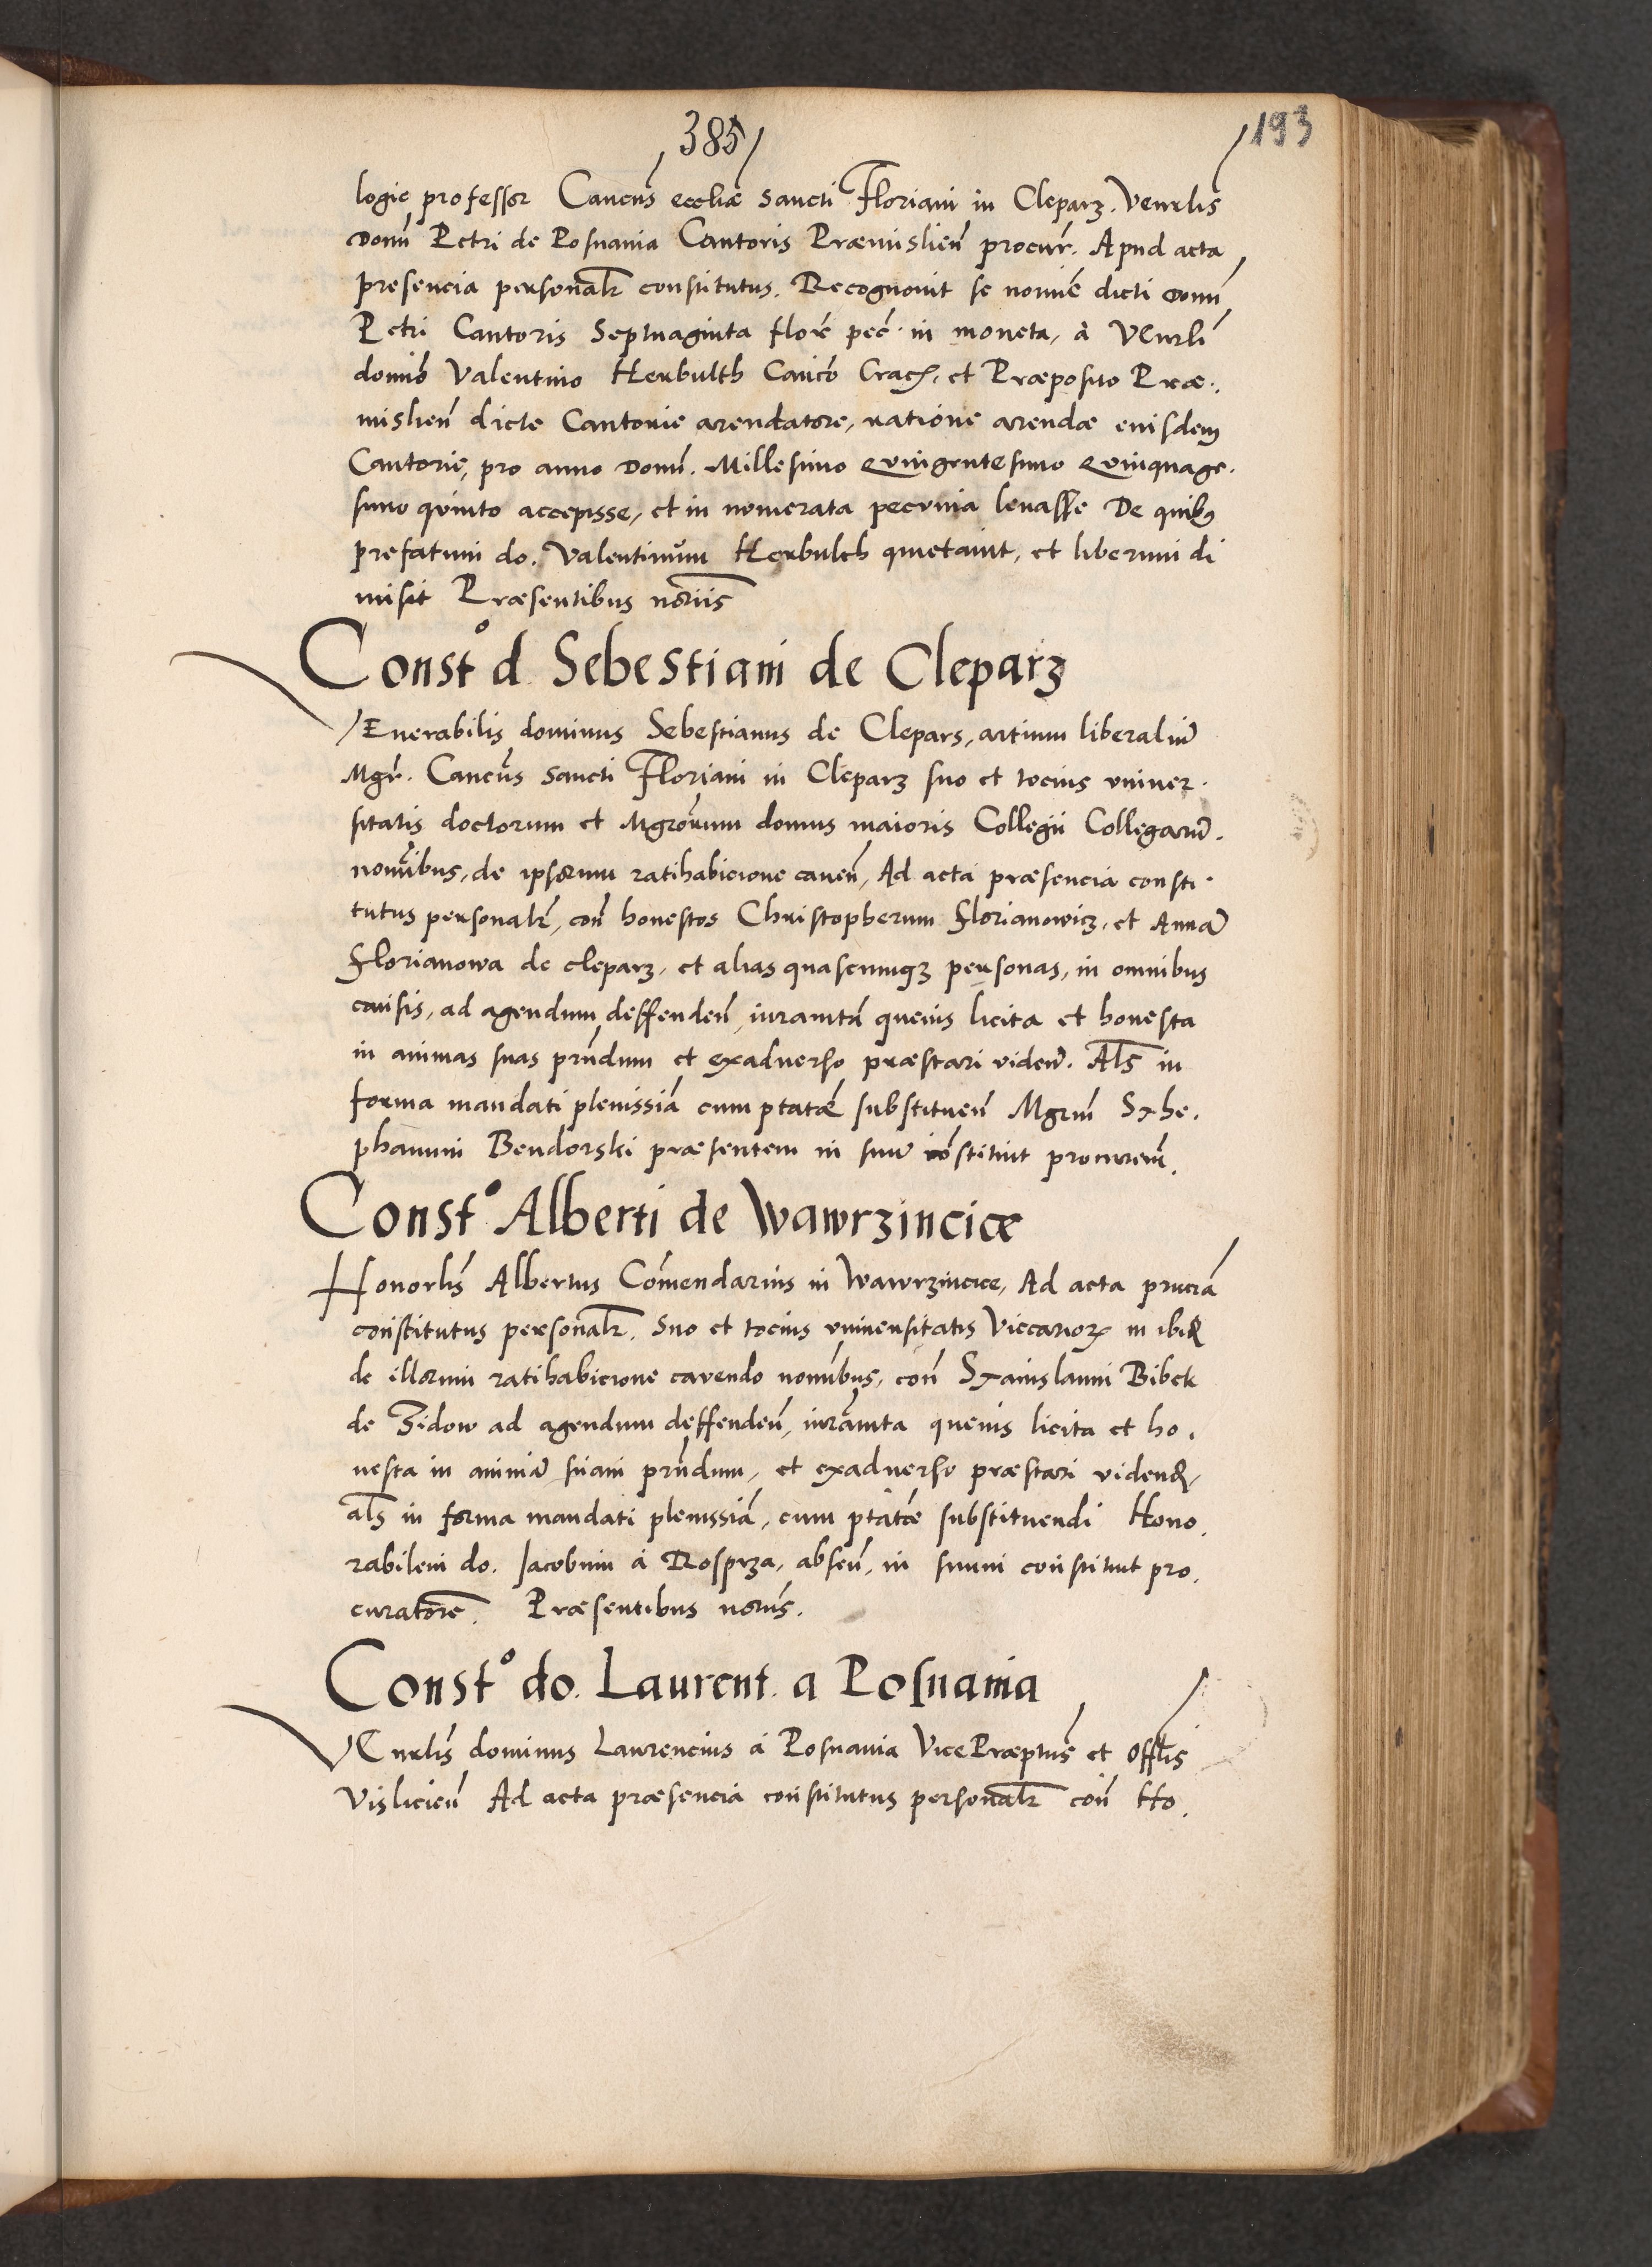 385
193
logie professor Cancus eccliæ sancti Floriani in Cleparz. Venrlis
domi Petri de Posnania Cantoris Præmislien procur. Apud acta
presencia personalr constitutus. Recognovit se nomie dicti domi
Petri Cantoris Septuaginta flore pec. in moneta, à Venrli
domio Valentino Herbulth Canico Crac. et Præposito Præ.
mislien dicte Cantorie arendatore, ratione arendæ eiusdem
Cantorie, pro anno domi. Millesimo qvingentesimo qvinquage.
simo qvinto accepisse, et in nomerata pecvnia levasse De quibus
prefatum do. Valentinum Herbulth quietavit, et liberum di
misit Præsentibus notoriis
Const° d. Sebestiani de Cleparz
VEnerabilis dominus Sebestianus de Clepars, artium liberaliu
Mgr. Cancus sancti Floriani in Cleparz suo et tocius univer.
sitatis doctorum et Mgrorum domus maioris Collegii Collegaru.
nominibus, de ipsorum ratihabicione caven, Ad acta præsencia consti.
tutus personalr, con honestos Christopherum Florianowicz, et Anna
Florianowa de cleparz, et alias quascunqz personas, in omnibus
causis, ad agendum deffenden, iuramta quevis licita et honesta
in animas suas prndum et exadverso præstari viden. Als in
forma mandati plenissia cum ptatæ substituen Mgrm Sthe.
phanum Bendorski præsentem in suu constituit procurem.
Const° Alberti de Wawrzincice
Honorlis Albertus Comendarius in Wawrzincice, Ad acta prucia
constitutus personalr. Suo et tocius universitatis Viccarior. in ibid
de illorum ratihabicione cavendo nominibus, con Stanislaum Bibek
de Zidow ad agendum deffenden, iuramta quevis licita et ho.
nesta in animã suam prndum, et exadverso præstari viden,
als in forma mandati plenissia, cum ptatæ substituendi Hono.
rabilem do. Jacobum à Rosprza, absen, in suum constituit pro.
curatore. Præsentibus notoriis.
Const° do. Laurent. a Posnania
VEnrlis dominus Laurencius à Posnania VicePræptus et Offlis
Vislicien Ad acta præsencia constitutus personalr con Ho.